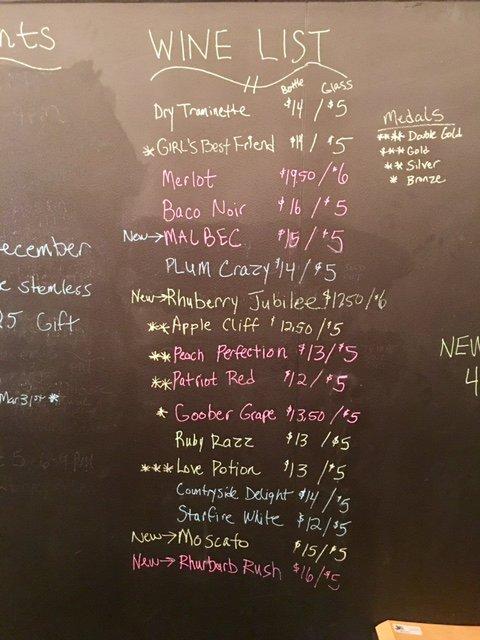 nts
WINE LIST
Bottle Glass
Dry Traminette $14 / $5
* GIRL'S Best Friend $14 / $5
Merlot $19.50 / $6
Baco Noir $16 / $5
New → MALBEC $15 / $5
PLUM Crazy $14 / $5
New → Rhuberry Jubilee $12.50 / $6
** Apple Cliff $12.50 / $5
** Peach Perfection $13 / $5
** Patriot Red $12 / $5
* Goober Grape $13.50 / $5
Ruby Razz $13 / $5
*** Love Potion $13 / $5
Countryside Delight $14 / $5
Starfire White $12 / $5
New → Moscato $15 / $5
New → Rhurbarb Rush $16 / $5
Medals
**** Double Gold
*** Gold
** Silver
* Bronze
ecember
e stemless
25 Gift
Mar 31st *
NEW
4